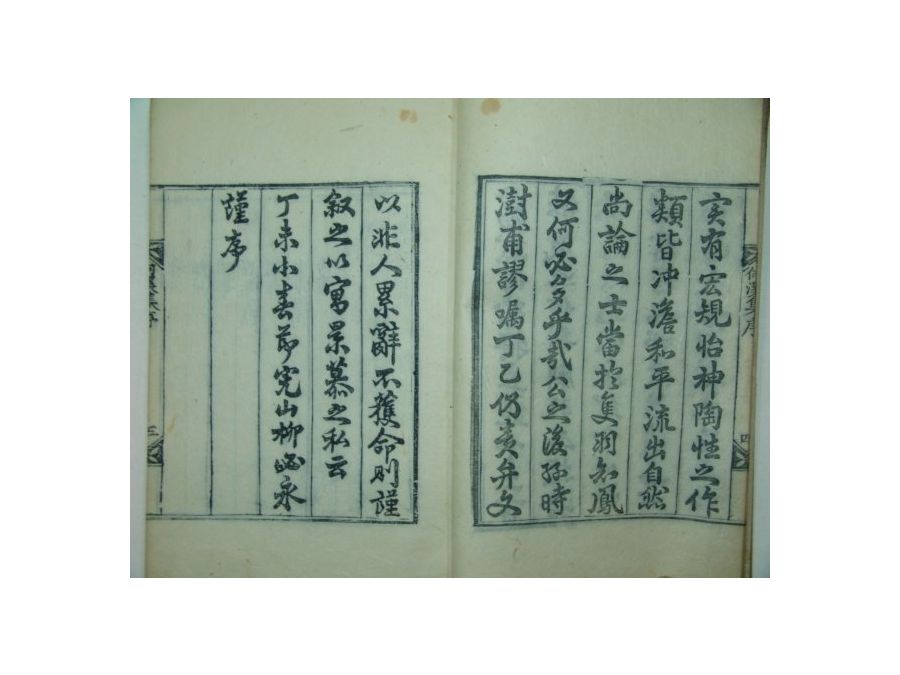 實有宏規怡神陶性之作
類皆冲澹和平流出自然
尚論之士當於隻羽知鳳
又何必多乎哉公之後孫時
澍甫謬囑丁乙仍責弁文
以非人累辭不獲命則謹
叙之以寓景慕之私云
丁未小春節完山柳 永
謹序
集序
四
集序
五